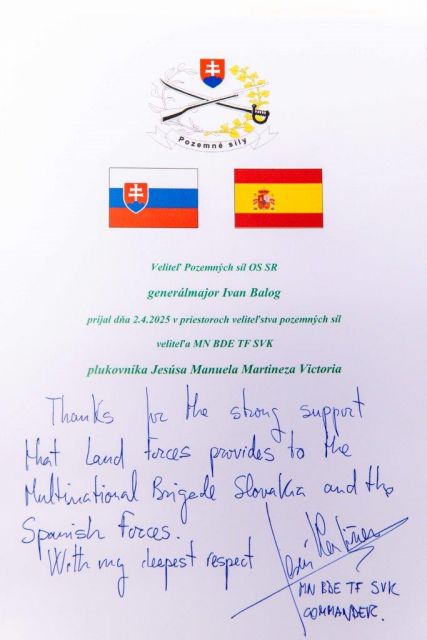 Pozemné sily
Veliteľ Pozemných síl OS SR
generálmajor Ivan Balog
prijal dňa 2.4.2025 v priestoroch veliteľstva pozemných síl
veliteľa MN BDE TF SVK
plukovníka Jesúsa Manuela Martineza Victoria
Thanks for the strong support
that Land Forces provides to the
Multinational Brigade Slovakia and the
Spanish Forces.
With my deepest respect
MN BDE TF SVK
COMMANDER.